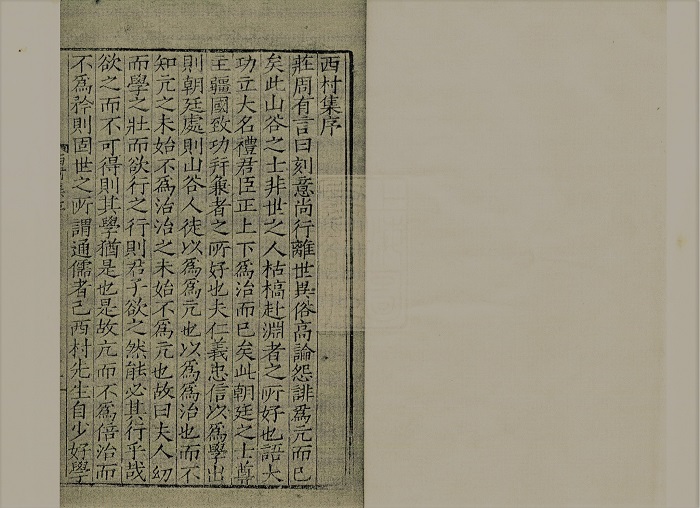 西村集序
莊周有言曰刻意尚行離世異俗高論怨誹爲亢而已
矣此山谷之士非世之人枯槁赴淵者之所好也語大
功立大名禮君臣正上下爲治而已矣此朝廷之士尊
主疆國致功并兼者之所好也夫仁義忠信以爲學出
則朝廷處則山谷人徒以爲爲亢也以爲爲治也而不
知亢之未始不爲治治之未始不爲亢也故曰夫人幼
而學之壯而欲行之行則君子欲之然能必其行乎哉
欲之而不可得則其學猶是也是故亢而不爲倍治而
不爲矜則固世之所謂通儒者已西村先生自少好學